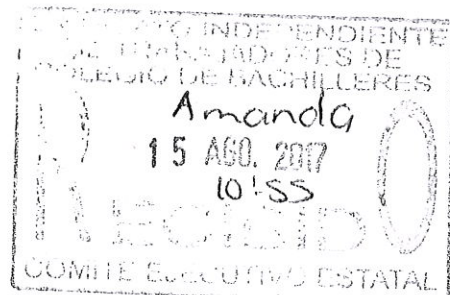 INDEPENDIENTE
DE TRABAJADORES DE
COLEGIO DE BACHILLERES
Amanda
15 AGO. 2017
10:55
RECIBIDO
COMITE EJECUTIVO ESTATAL